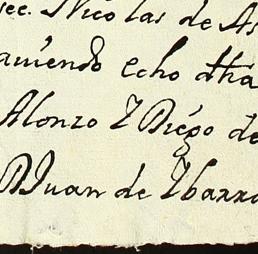 sec. Nicolas de As
auiendo echo dha
Alonzo Z Diego de
D Juan de Ybarra